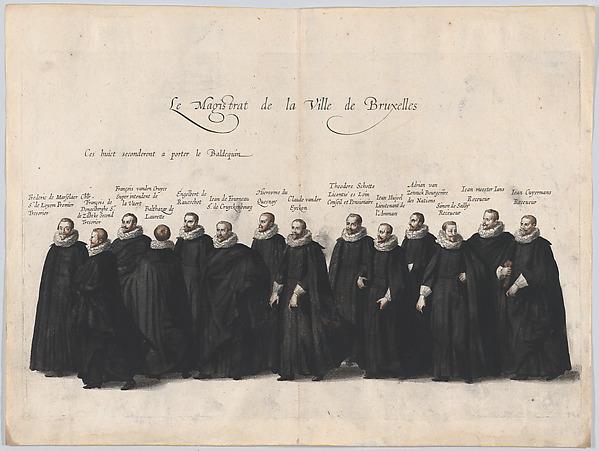 Le Magistrat de la Ville de Bruxelles
Ces huict seconderent a porter le Baldequin
Frederic de Marselaer
Sr. de Loyem Premier
Tresorier
Chlr.
François de
Dongelberghe Sr.
de Zillebeke Second
Tresorier
François vanden Cruyce
Super intendent de
la Vaert
Balthazar de
Laurette
Engelbert de
Raueschot
Iean de Fourneau
S. de Cruyckenbourg
Hierosme du
Quesnoy
Claude vander
Eycken
Theodore Schotte
Licentie es Loix
Consel et Pensionaire
Iean Huioel
Lieutenant de
l'Amman
Adrian van
Zennick Bourgmre
des Nations
Simon de Sailly
Receueur
Iean meester Ians
Receueur
Iean Cuyermans
Receueur